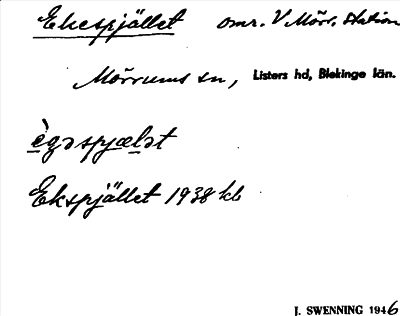 Ekespjället omr. V Mörr. station
Mörrums sn, Listers hd, Blekinge län.
ègəspjælət
Ekspjället 1938 kb
J. SWENNING 1946